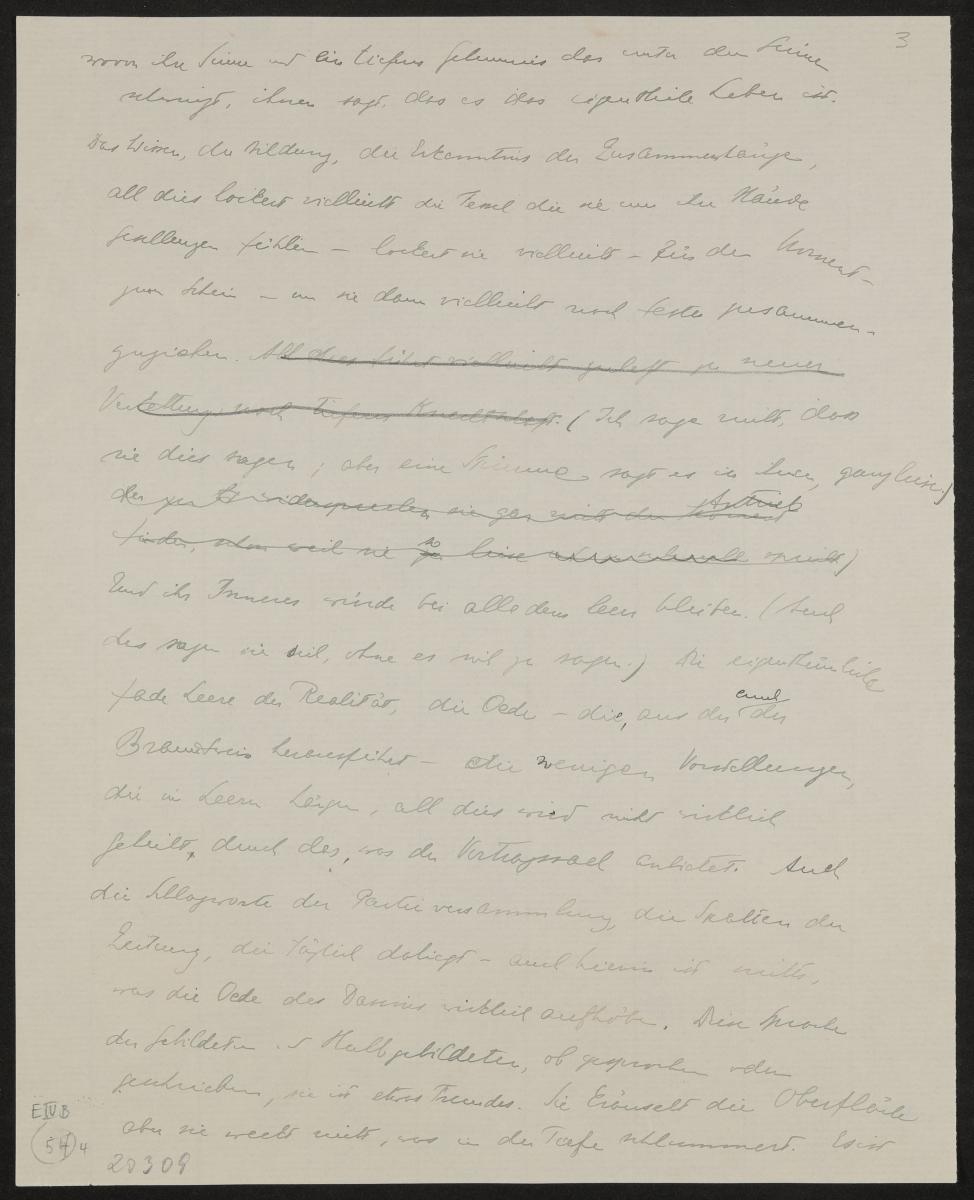 3
wovon ihre Sinne und ein tieferes Geheimnis das unter den Sinnen
schwingt, ihnen sagt, dass es das eigentliche Leben ist.
Das Wissen, die Bildung, die Erkenntnis der Zusammenhänge,
all dies lockert vielleicht die Fessel die sie um ihre Hände
geschlungen fühlen – lockert sie vielleicht – für den Moment –
zum Schein – um sie dann vielleicht noch fester zusammen-
zuziehen. All dies führt vielleicht zuletzt zu neuer
Verkettung, noch tieferer Knechtschaft. (Ich sage nicht, dass
sie dies sagen; aber eine Stimme sagt es in ihnen, ganz leise)
der zu widersprechen sie gar nicht den Moment Antrieb
finden, schon weil sie so leise spricht)
Und ihr Inneres würde bei alledem leer bleiben. (Auch
dies sagen sie sich, ohne es sich zu sagen.) Die eigenthümliche
fade Leere der Realität, die Oede – die, aus der auch der
Branntwein herausführt – die wenigen Vorstellungen,
die im Leeren hängen, all dies wird nicht wirklich
geheilt, durch das, was der Vortragssaal anbietet. Auch
die Schlagworte der Parteiversammlung, die Spalten der
Zeitung, die täglich daliegt – auch hierin ist nichts,
was die Oede des Daseins wirklich aufhöbe. Diese Sprache
der Gebildeten u Halbgebildeten, ob gesprochen oder
geschrieben, sie ist etwas Fremdes. Sie kräuselt die Oberfläche
aber sie weckt nicht, was in der Tiefe schlummert. Es ist
E IV B
54 4
20309